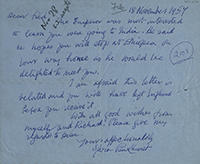 File 18 November 1957
Dear Reg,
The Emperor was most interested
to learn you were going to India. He said
he hopes you will stop at Ethiopia on
your way home as he would be
delighted to meet you.
I am afraid this letter is
belated and you will have left England
before you receive it.
With all good wishes from
myself and Richard. Please give my
regards to
Yours affectionately
Sylvia Pankhurst